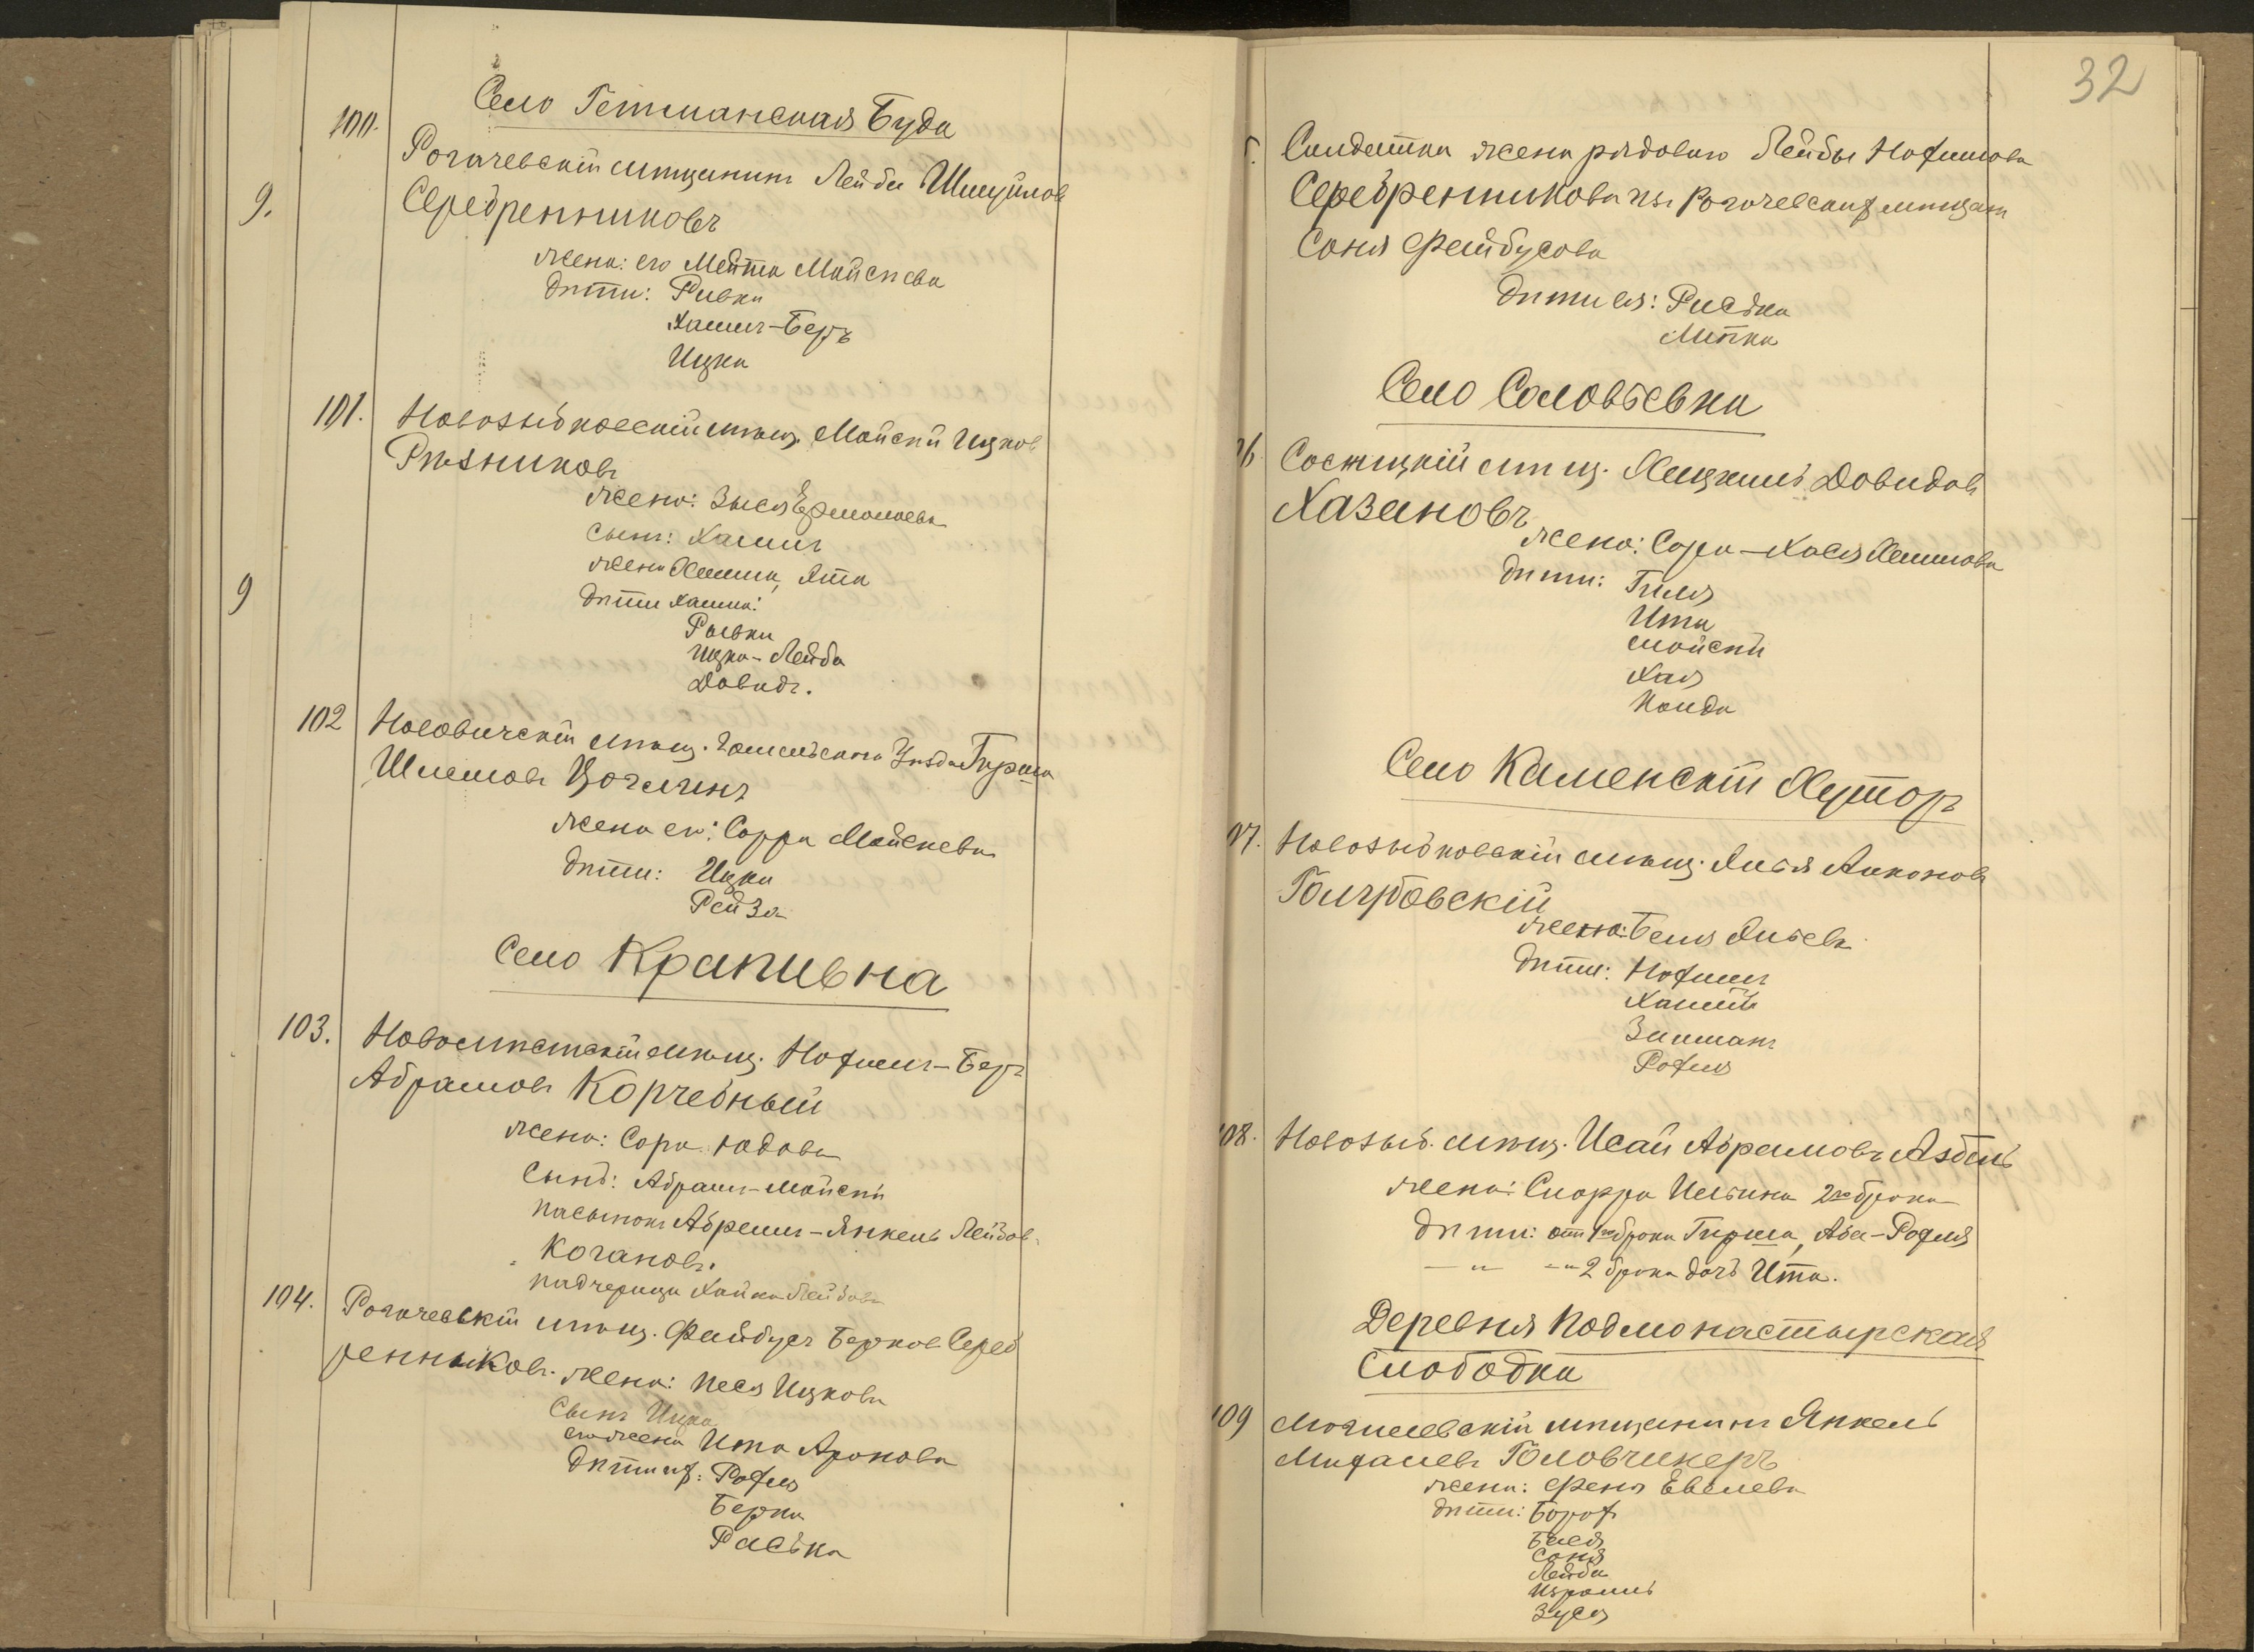 Село Гетманская Буда
100. Рогачевскій мѣщанинъ Лейба Шмуйлов
9.
Серебренниковъ
жена: его Мейта Мойсѣева
дѣти: Ривка
Хаимъ-Беръ
Ицка
101. Новозыбковскій мѣщ. Мойсѣй Ицков
Рѣзниковъ
жена: Зыся Ермолаева
сынъ: Хаимъ
жена Хаима, Эта
9
дѣти Хаима:
Рывка
Ицка-Лейба
Давидъ.
102 Носовичскій мѣщ. Гомельскаго Уѣзда Гирша
Шлемовъ
жена его: Сорра Мойсѣева
дѣти: Ицка
Рейза
Село Крапивна
103. Новомѣстскій мѣщ. Нохимъ-Беръ
Абрамовъ Корчебный
жена: Сора Юдова
Сынъ: Абрамъ-Мойсѣй
пасынокъ Абрамъ-Янкель Лейбов
Когановъ.
падчерица Хайка Лейбова
104. Рогачевскій мѣщ. Файбусъ Берков Сереб
ренниковъ. жена: Песя Ицкова
Сынъ Ицка
его жена Ита Аронова
дѣти ихъ: Рохля
Берка
Раська
32
Солдатка жена рядового Лейбы Нохимова
Серебренникова изъ Рогачевскихъ мѣщан
Соня Файбусова
дѣти ея: Риська
Митка
Село Соловьевка
06. Сосницкій мѣщ. Хацкель Довидовъ
Хазановъ
жена: Сора-Хася Хаимова
дѣти: Гиля
Ита
Мойсѣй
Хая
Село Каменскій Хуторъ
07. Новозыбковскій мѣщ. Илья Анконовъ
Голубовскій
жена: Беля Ильева
дѣти: Нохимъ
Залманъ
Рохля
108. Новозыб. мѣщ. Исай Абрамовъ Азбель
жена: Слорра Ильина 2го брака
дѣти: отъ 1го брака Гирша, Аба-Рохля
— " — " 2 брака дочь Ита.
Деревня Подмонастырская
Слободка
109 Могилевскій мѣщанинъ Янкель
Михалевъ Головчинеръ
жена: Феня Евелева
дѣти: Борохъ
Бася
Соня
Лейба
Израиль
Зуся